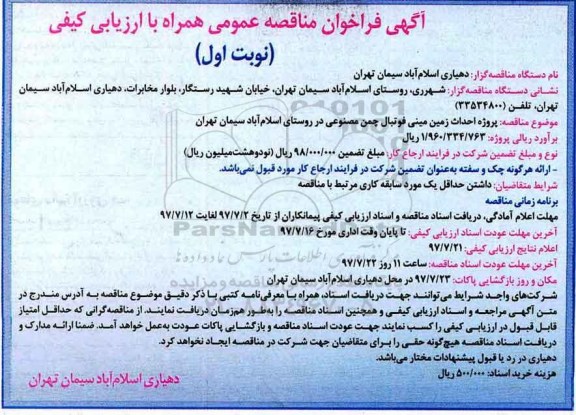 آگهی فراخوان مناقصه عمومی همراه با ارزیابی کیفی
(نوبت اول)
نام دستگاه مناقصه‌گزار: دهیاری اسلام‌آباد سیمان تهران
نشانی دستگاه مناقصه‌گزار: شهرری، روستای اسلام‌آباد سیمان تهران، خیابان شهید رستگار، بلوار مخابرات، دهیاری اسلام‌آباد سیمان
تهران، تلفن (۳۳۵۳۴۸۰۰)
موضوع مناقصه: پروژه احداث زمین مینی فوتبال چمن مصنوعی در روستای اسلام‌آباد سیمان تهران
برآورد ریالی پروژه: ۱/۹۶۰/۳۳۴/۷۶۳ ریال
نوع و مبلغ تضمین شرکت در فرایند ارجاع کار: مبلغ تضمین ۹۸/۰۰۰/۰۰۰ ریال (نودوهشت‌میلیون ریال)
- ارائه هرگونه چک و سفته به‌عنوان تضمین شرکت در فرایند ارجاع کار مورد قبول نمی‌باشد.
شرایط متقاضیان: داشتن حداقل یک مورد سابقه کاری مرتبط با مناقصه
برنامه زمانی مناقصه
مهلت اعلام آمادگی، دریافت اسناد مناقصه و اسناد ارزیابی کیفی پیمانکاران از تاریخ ۹۷/۷/۲ لغایت ۹۷/۷/۱۲
آخرین مهلت عودت اسناد ارزیابی کیفی: تا پایان وقت اداری مورخ ۹۷/۷/۱۶
اعلام نتایج ارزیابی کیفی: ۹۷/۷/۲۱
آخرین مهلت عودت اسناد مناقصه: ساعت ۱۱ روز ۹۷/۷/۲۳
مکان و روز بازگشایی پاکات: ۹۷/۷/۲۳ در محل دهیاری اسلام‌آباد سیمان تهران
شرکت‌های واجد شرایط می‌توانند جهت دریافت اسناد، همراه با معرفی‌نامه کتبی با ذکر دقیق موضوع مناقصه به آدرس مندرج در
متن آگهی مراجعه و اسناد ارزیابی کیفی و همچنین اسناد مناقصه را به‌طور همزمان دریافت نمایند. از مناقصه‌گرانی که حداقل امتیاز
قابل قبول در ارزیابی کیفی را کسب نمایند جهت عودت اسناد مناقصه و بازگشایی پاکات عودت به‌عمل خواهد آمد. ضمنا ارائه مدارک و
دریافت اسناد مناقصه هیچ‌گونه حقی را برای متقاضیان جهت شرکت در مناقصه ایجاد نخواهد کرد.
دهیاری در رد یا قبول پیشنهادات مختار می‌باشد.
هزینه خرید اسناد: ۵۰۰/۰۰۰ ریال
دهیاری اسلام‌آباد سیمان تهران